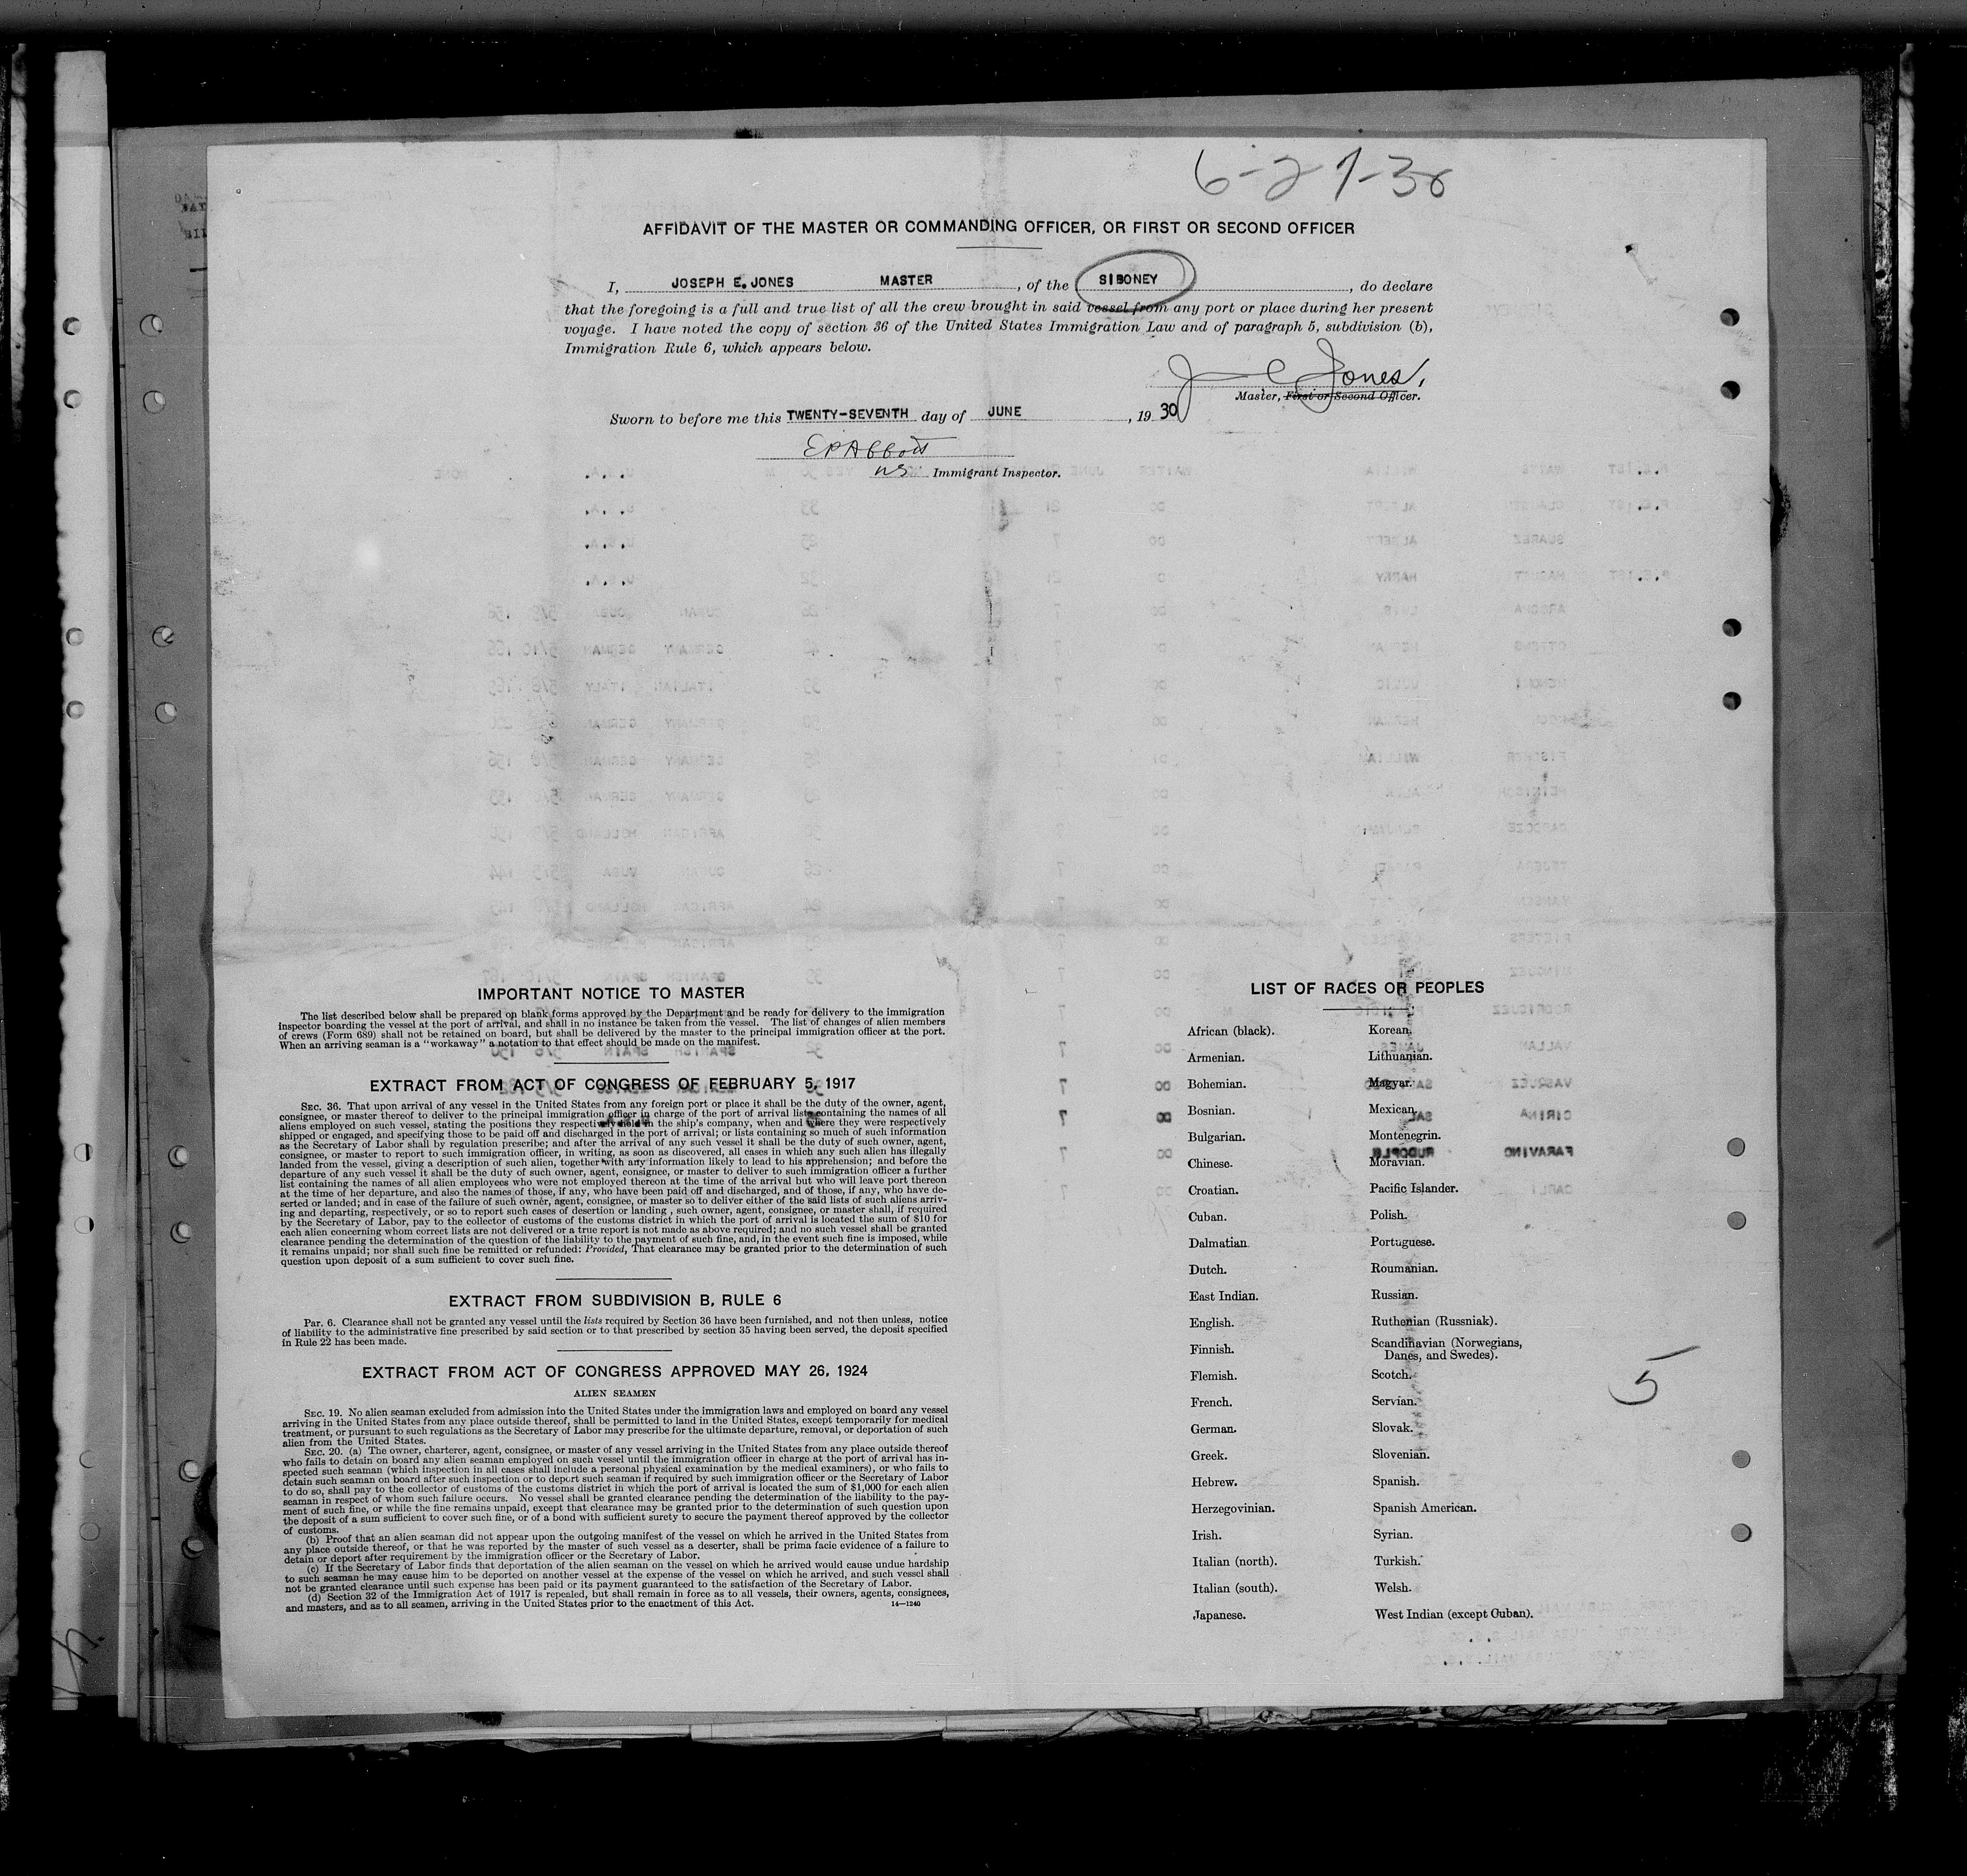 6-27-30
AFFIDAVIT OF THE MASTER OR COMMANDING OFFICER, OR FIRST OR SECOND OFFICER
I, JOSEPH E. JONES MASTER, of the SIBONEY, do declare
that the foregoing is a full and true list of all the crew brought in said vessel from any port or place during her present
voyage. I have noted the copy of section 36 of the United States Immigration Law and of paragraph 5, subdivision (b),
Immigration Rule 6, which appears below.
J E Jones,
Master, First or Second Officer.
Sworn to before me this TWENTY-SEVENTH day of JUNE, 19 30
E P Abbott
US Immigrant Inspector.
IMPORTANT NOTICE TO MASTER
The list described below shall be prepared on blank forms approved by the Department and be ready for delivery to the immigration
inspector boarding the vessel at the port of arrival, and shall in no instance be taken from the vessel. The list of changes of alien members
of crews (Form 689) shall not be retained on board, but shall be delivered by the master to the principal immigration officer at the port.
When an arriving seaman is a "workaway" a notation to that effect should be made on the manifest.
EXTRACT FROM ACT OF CONGRESS OF FEBRUARY 5, 1917
SEC. 36. That upon arrival of any vessel in the United States from any foreign port or place it shall be the duty of the owner, agent,
consignee, or master thereof to deliver to the principal immigration officer in charge of the port of arrival lists containing the names of all
aliens employed on such vessel, stating the positions they respectively hold in the ship's company, when and where they were respectively
shipped or engaged, and specifying those to be paid off and discharged in the port of arrival; or lists containing so much of such information
as the Secretary of Labor shall by regulation prescribe; and after the arrival of any such vessel it shall be the duty of such owner, agent,
consignee, or master to report to such immigration officer, in writing, as soon as discovered, all cases in which any such alien has illegally
landed from the vessel, giving a description of such alien, together with any information likely to lead to his apprehension; and before the
departure of any such vessel it shall be the duty of such owner, agent, consignee, or master to deliver to such immigration officer a further
list containing the names of all alien employees who were not employed thereon at the time of the arrival but who will leave port thereon
at the time of her departure, and also the names of those, if any, who have been paid off and discharged, and of those, if any, who have de-
serted or landed; and in case of the failure of such owner, agent, consignee, or master so to deliver either of the said lists of such aliens arriv-
ing and departing, respectively, or so to report such cases of desertion or landing, such owner, agent, consignee, or master shall, if required
by the Secretary of Labor, pay to the collector of customs of the customs district in which the port of arrival is located the sum of $10 for
each alien concerning whom correct lists are not delivered or a true report is not made as above required; and no such vessel shall be granted
clearance pending the determination of the question of the liability to the payment of such fine, and, in the event such fine is imposed, while
it remains unpaid; nor shall such fine be remitted or refunded: Provided, That clearance may be granted prior to the determination of such
question upon deposit of a sum sufficient to cover such fine.
EXTRACT FROM SUBDIVISION B, RULE 6
Par. 6. Clearance shall not be granted any vessel until the lists required by Section 36 have been furnished, and not then unless, notice
of liability to the administrative fine prescribed by said section or to that prescribed by section 35 having been served, the deposit specified
in Rule 22 has been made.
EXTRACT FROM ACT OF CONGRESS APPROVED MAY 26, 1924
ALIEN SEAMEN
SEC. 19. No alien seaman excluded from admission into the United States under the immigration laws and employed on board any vessel
arriving in the United States from any place outside thereof, shall be permitted to land in the United States, except temporarily for medical
treatment, or pursuant to such regulations as the Secretary of Labor may prescribe for the ultimate departure, removal, or deportation of such
alien from the United States.
SEC. 20. (a) The owner, charterer, agent, consignee, or master of any vessel arriving in the United States from any place outside thereof
who fails to detain on board any alien seaman employed on such vessel until the immigration officer in charge at the port of arrival has in-
spected such seaman (which inspection in all cases shall include a personal physical examination by the medical examiners), or who fails to
detain such seaman on board after such inspection or to deport such seaman if required by such immigration officer or the Secretary of Labor
to do so, shall pay to the collector of customs of the customs district in which the port of arrival is located the sum of $1,000 for each alien
seaman in respect of whom such failure occurs. No vessel shall be granted clearance pending the determination of the liability to the pay-
ment of such fine, or while the fine remains unpaid, except that clearance may be granted prior to the determination of such question upon
the deposit of a sum sufficient to cover such fine, or of a bond with sufficient surety to secure the payment thereof approved by the collector
of customs.
(b) Proof that an alien seaman did not appear upon the outgoing manifest of the vessel on which he arrived in the United States from
any place outside thereof, or that he was reported by the master of such vessel as a deserter, shall be prima facie evidence of a failure to
detain or deport after requirement by the immigration officer or the Secretary of Labor.
(c) If the Secretary of Labor finds that deportation of the alien seaman on the vessel on which he arrived would cause undue hardship
to such seaman he may cause him to be deported on another vessel at the expense of the vessel on which he arrived, and such vessel shall
not be granted clearance until such expense has been paid or its payment guaranteed to the satisfaction of the Secretary of Labor.
(d) Section 32 of the Immigration Act of 1917 is repealed, but shall remain in force as to all vessels, their owners, agents, consignees,
and masters, and as to all seamen, arriving in the United States prior to the enactment of this Act.
14—1240
LIST OF RACES OR PEOPLES
African (black).
Armenian.
Bohemian.
Bosnian.
Bulgarian.
Chinese.
Croatian.
Cuban.
Dalmatian
Dutch.
East Indian.
English.
Finnish.
Flemish.
French.
German.
Greek.
Hebrew.
Herzegovinian.
Irish.
Italian (north).
Italian (south).
Japanese.
Korean.
Lithuanian.
Magyar.
Mexican.
Montenegrin.
Moravian.
Pacific Islander.
Polish.
Portuguese.
Roumanian.
Russian.
Ruthenian (Russniak).
Scandinavian (Norwegians,
Danes, and Swedes).
Scotch.
Servian.
Slovak.
Slovenian.
Spanish.
Spanish American.
Syrian.
Turkish.
Welsh.
West Indian (except Cuban).
5